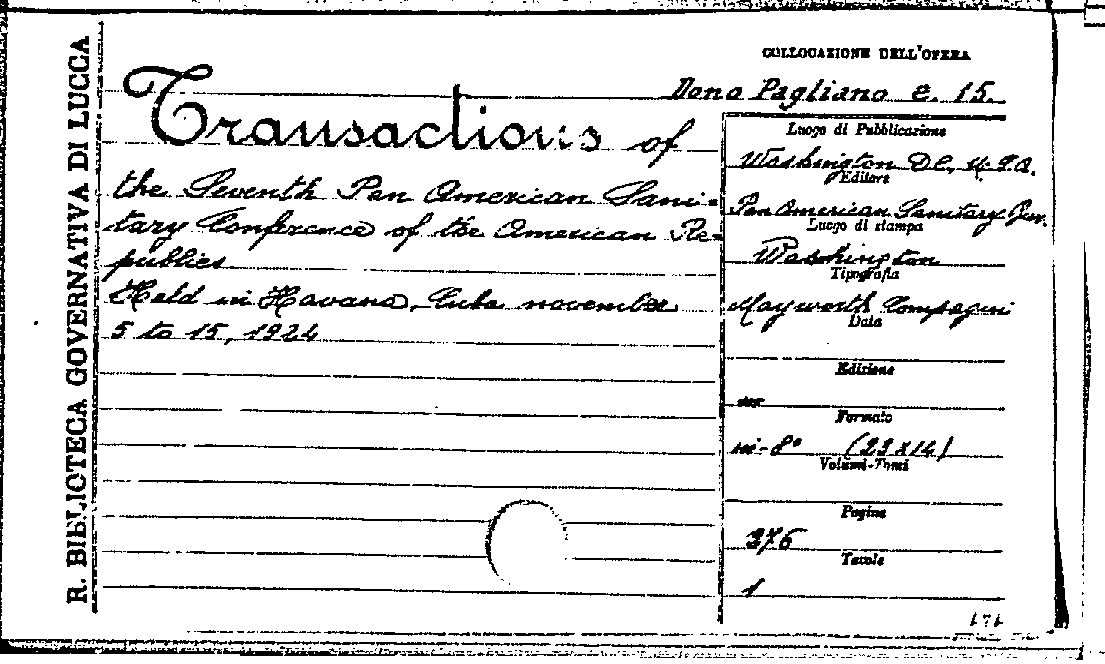 R. BIBLIOTECA GOVERNATIVA DI LUCCA
COLLOCAZIONE DELL'OPERA
Dono Pagliano e. 15.
Transactions of
the Seventh Pan American Sani-
tary Conference of the American Re-
publics
Held in Havana, Cuba november
5 to 15, 1924
Luogo di Pubblicazione
Washington D.C., U.S.A.
Editore
Pan American Sanitary Bur.
Luogo di stampa
Washington
Tipografia
Mayworth Compagni
Data
Edizione
Formato
in-8° (23x14)
Volumi-Tomi
Pagine
376
Tavole
1